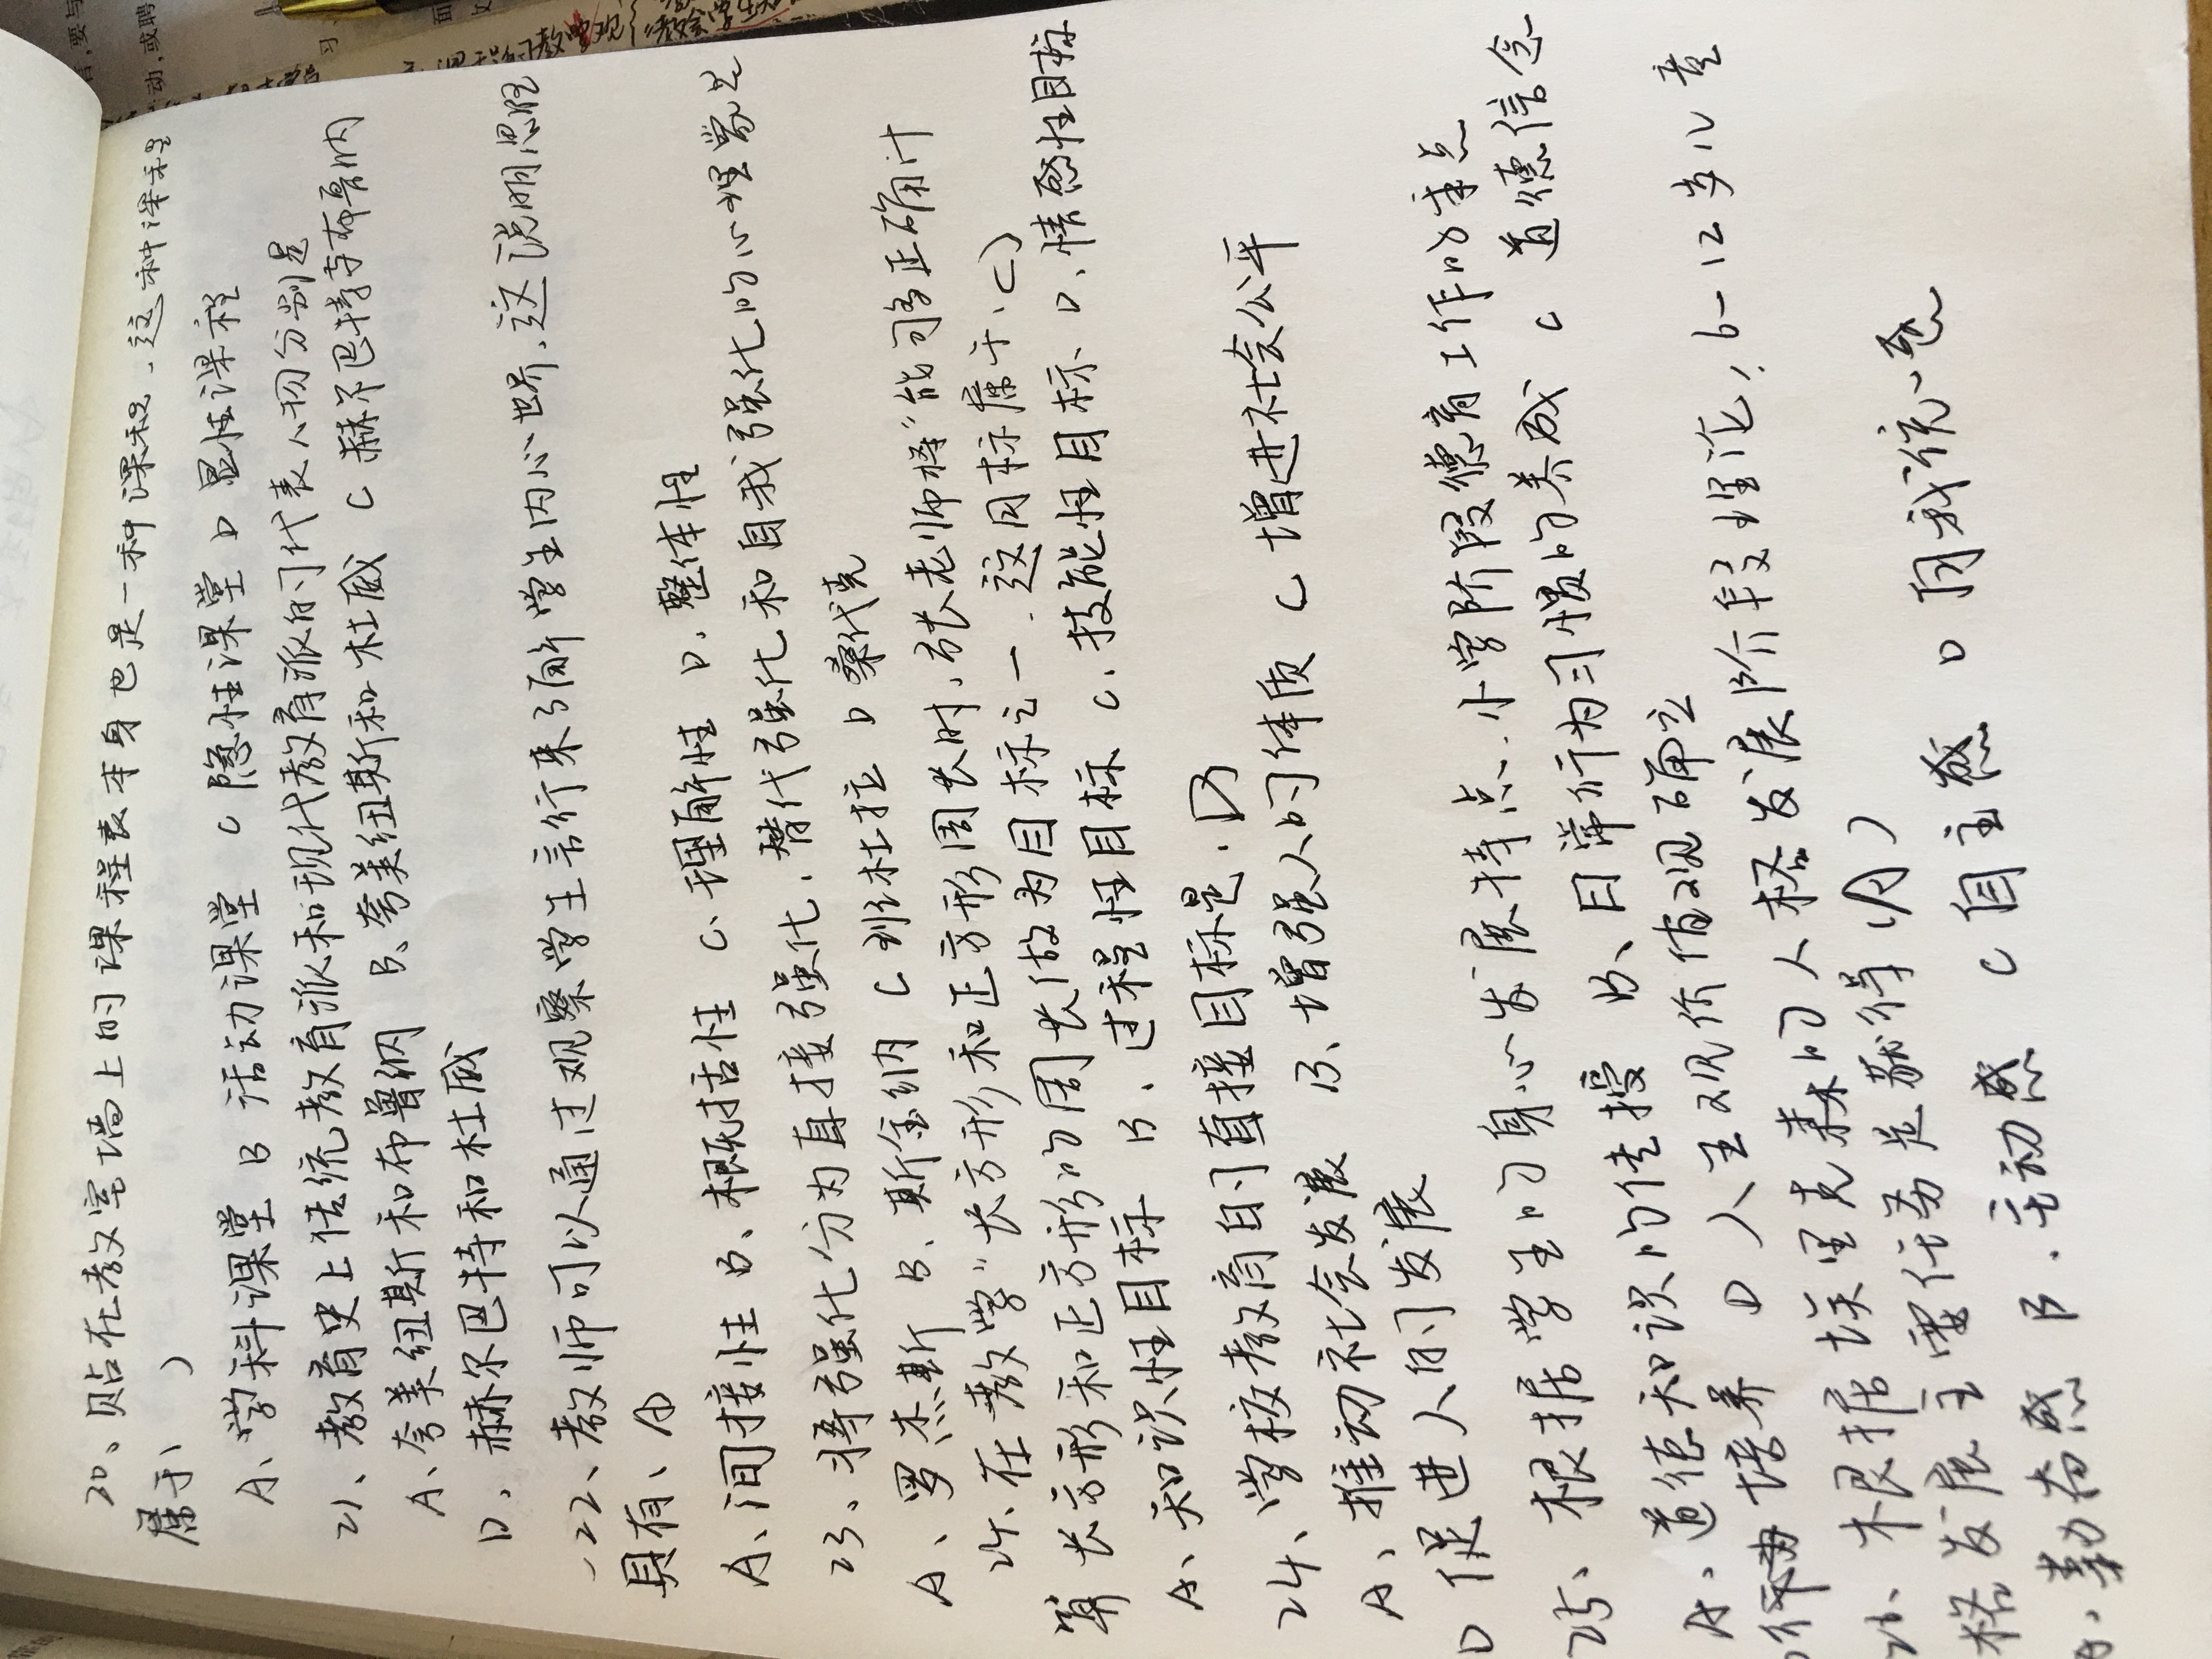 20、贴在教室墙上的课程表本身也是一种课程，这种课程
属于（ ）
A、学科课堂 B 活动课堂 C 隐性课堂 D 显性课程
21、教育史上传统教育派和现代教育派的代表人物分别是
A、夸美纽斯和布鲁纳 B、夸美纽斯和杜威 C 赫尔巴特与布鲁纳
D、赫尔巴特和杜威
22、教师可以通过观察学生言行来了解学生内心世界，这说明思维
具有、A
A、间接性 B、概括性 C、理解性 D、整体性
23、将强化分为直接强化，替代强化和自我强化的心理学家是
A、罗杰斯 B、斯金纳 C 班杜拉 D 桑代克
24、在教学“长方形和正方形周长时，张老师将“能够正确计
算长方形和正方形的周长做为目标之一，这目标属于（C）
A、知识性目标 B、过程性目标 C、技能性目标 D、情感性目标
24、学校教育的直接目标是、D
A、推动社会发展 B、增强人的体质 C 增进社会公平
D 促进人的发展
25、根据学生的身心发展特点，小学阶段德育工作的重点
A、道德知识的传授 B、日常行为习惯的养成 C 道德信念
行为培养 D 人生观价值观确立
26、根据埃里克森的人格发展阶段理论，6-12岁儿童
格发展主要任务是获得（A）
A、勤奋感 B、主动感 C 自主感 D 自我统一感
动，或聘
习
面